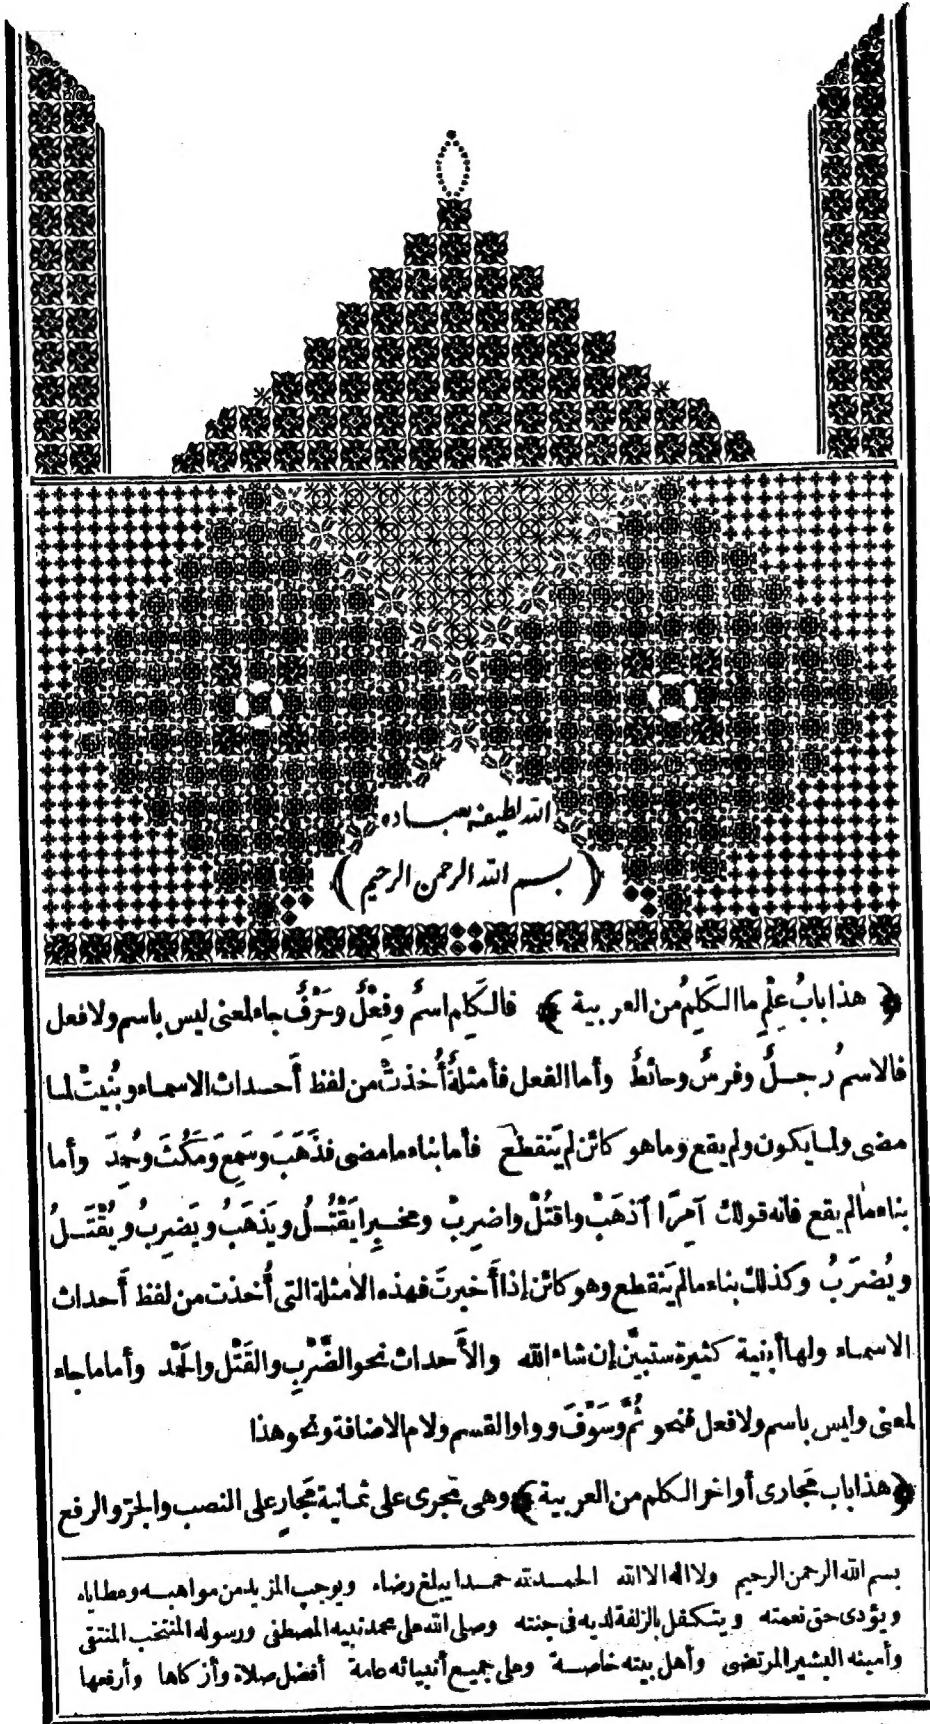 الله لطيف بعباده
﴿ بسم الله الرحمن الرحيم ﴾
﴿ هذا بابُ عِلْمِ ما الكَلِمُ من العربية ﴾ فالكَلِم اسمٌ وفِعْلٌ وحَرْفٌ جاء لمعنى ليس باسم ولا فعل
فالاسمُ رجلٌ وفرسٌ وحائطٌ وأما الفعل فأمثلةٌ أُخذتْ من لفظ أحداث الاسماء وبُنيتْ لما
مضى ولما يكون ولم يقع وما هو كائن لم يَنقطع فأما بناء ما مضى فذَهَبَ وسَمِعَ ومَكُثَ وحُمِدَ وأما
بناء ما لم يقع فانه قولك آمِرًا آذهَبْ واقتُلْ واضرِبْ ومخبِرا يَقْتُلُ ويَذهَبُ ويَضرِبُ ويُقْتَلُ
ويُضرَبُ وكذلك بناء ما لم يَنقطع وهو كائن إذا أَخبرتَ فهذه الامثلة التى أُخذت من لفظ أَحداث
الاسماء ولها أبنية كثيرة ستبيَّن إن شاء الله والأَحداث نحو الضَّرْبِ والقَتْل والحَمْد وأما ما جاء
لمعنى وليس باسم ولا فعل فنحو ثُمَّ وسَوْفَ وواو القسم ولام الاضافة ونحو هذا
﴿ هذا باب مَجارى أواخر الكلم من العربية ﴾ وهى تجرى على ثمانية مَجارٍ على النصب والجرّ والرفع
بسم الله الرحمن الرحيم ولا اله الا الله الحمد لله حمدا يبلغ رضاه ويوجب المزيد من مواهبه وعطاياه
ويؤدى حق نعمته ويتكفل بالزلفة لديه فى جنته وصلى الله على محمد نبيه المصطفى ورسوله المنتخب المنتقى
وأمينه البشير المرتضى وأهل بيته خاصة وعلى جميع أنبيائه عامة أفضل صلاة وأزكاها وأرفعها